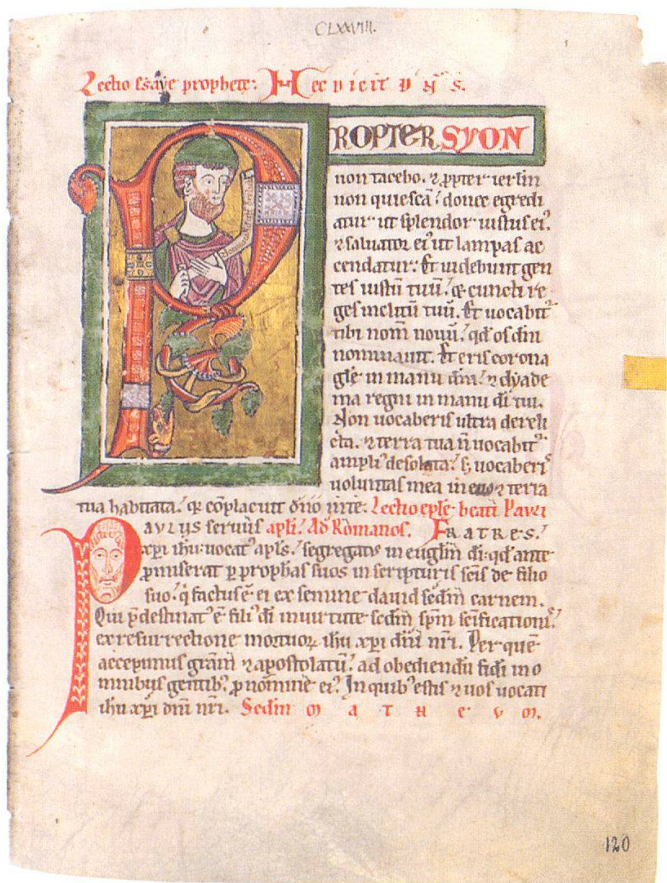 CLXXVIII.
Lectio Esaye prophete. Hec dicit dns.
PROPTER SYON
non tacebo. ⁊ ꝓpter ierlm
non quiescā donec egredi
atur ut splendor iustus ei᾽
⁊ saluator ei᾽ ut lampas ac
cendatur. Et uidebunt gen
tes iustū tuū. ⁊ cuncti re
ges inclitū tuū. Et uocabit᾽
tibi nom̄ nouū. qd̄ os dn̄i
nominauit. Et eris corona
gl̄e in manu dn̄i. ⁊ dyade
ma regni in manu di tui.
Non uocaberis ultra dereli
cta. ⁊ terra tua n̄ uocabit᾽
ampli᾽ desolata. s; uocaberis
uoluntas mea in ea ⁊ terra
tua habitata. q̄ cōplacuit dn̄o in te. Lectio eple beati Pauli
PAULUS seruus apli. Ad Romanos. FRATRES.
xp̄i ih̄u uocat᾽ apl̄s. segregatus in euglm̄ di. qd̄ ante
ꝓmiserat ꝑ ꝓphas suos in scripturis sc̄is de filio
suo. q̄ factus ē ei ex semine dauid sedm̄ carnem.
Qui p̄destinat᾽ ē fili᾽ di in uirtute sedm̄ spm̄ sc̄ificationis
ex resurrectione mortuoꝝ ih̄u xp̄i dn̄i nr̄i. Per quē
accepimus grām ⁊ apostolatū. ad obediendū fidi in o
mnibus gentib᾽ ꝓ nomine ei᾽. In quib᾽ estis ⁊ uos uocati
ih̄u xp̄i dn̄i nr̄i. Sedm̄ MATHEUM.
120